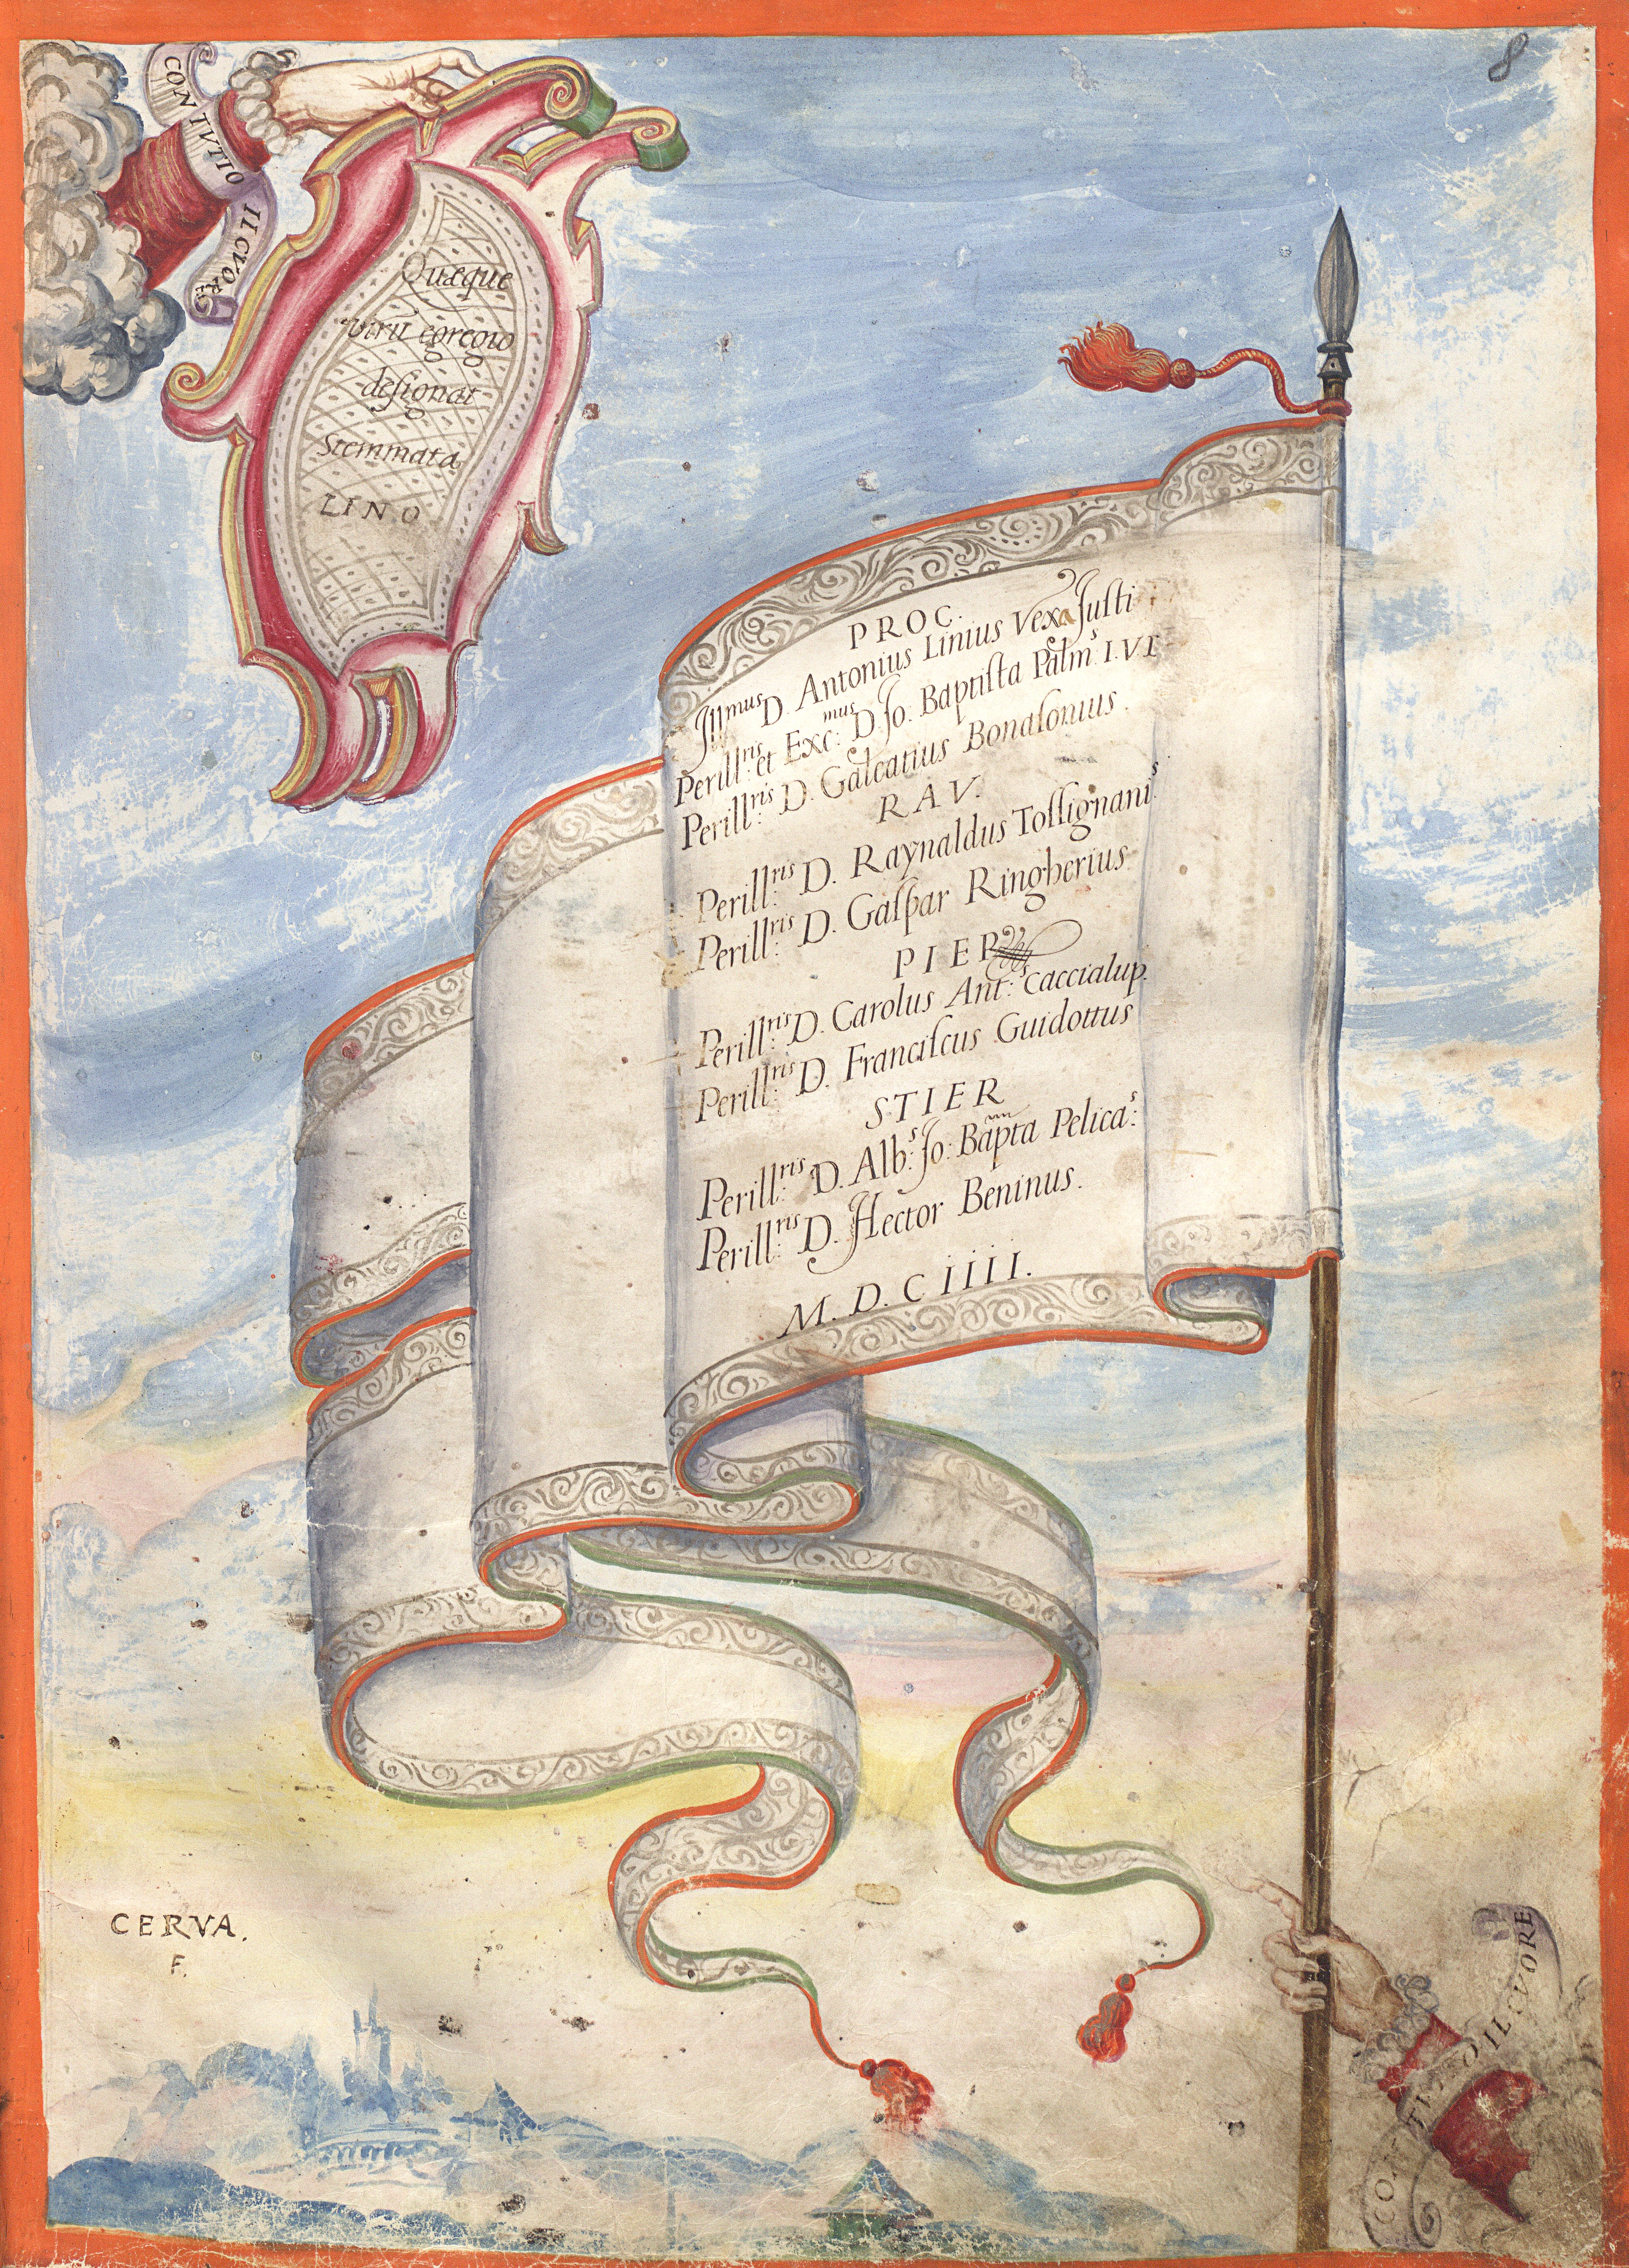 8
CON TVTIO IL CVORE
Quæque
virũ egregio
deſignat
Stemmata
LINO
PROC.
Jllmus D. Antonius Linius Vexa Juſti
Perillris: et Exc:mus D. Jo: Baptiſta Palm:s I.V.
Perillris: D. Galeatius Bonaſonius.
RAV.
Perillris: D. Raynaldus Toſſignani:s
Perillris: D. Gaſpar Ringherius
PIER
Perillris: D. Carolus Ant:s Caccialup.
Perillris: D. Franciſcus Guidottus
STIER
Perillris: D. Alb:s Jo: Bapta Pelica:s
Perillris: D. Hector Beninus.
M.D.C IIII.
CERVA.
F.
CON TVTIO IL CVORE